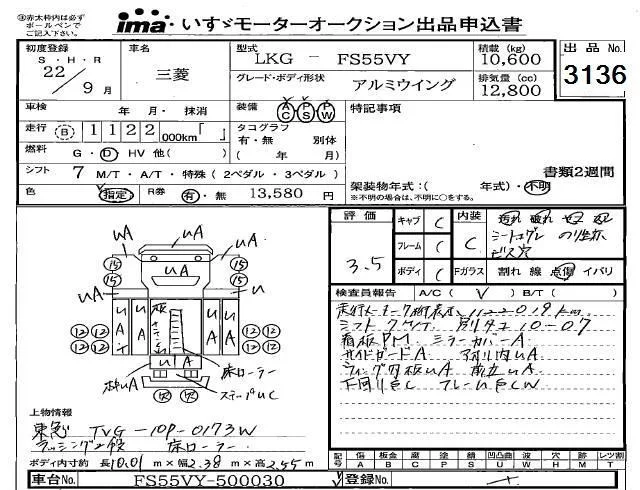 ※赤太枠内を必ず
ボールペンで
ご記入下さい。
ima いすゞモーターオークション出品申込書
初度登録 S・H・R 22 9 月
車名 三菱
型式 LKG - FS55VY
グレード・ボディ形状 アルミウイング
積載(kg) 10,600
排気量(cc) 12,800
出品No. 3136
車検 年 月・抹消
装備 AC PS PW
特記事項
走行 B 1122 000km「 」
タコグラフ 有・無 別体 ( 年 月)
燃料 G・D HV 他( )
書類2週間
シフト 7 M/T・A/T・特殊(2ペダル・3ペダル)
架装物年式:( 年式)・不明
※不明の場合は、不明に○をする。
色 指定 R券 有・無 13,580 円
評価 3.5
キャブ C
フレーム C
ボディ C
内装 C
シートコゲ
ビス穴
Fガラス 割れ 線 点傷 イバリ
検査員報告 A/C( ✓ ) B/T( )
シフト 7M/T 別タコ10-07
看板PM ミラーカバーA
サイドガードA アオリ内uA
ウィング内板uA 前立uA
下回りSC フレームSCW
uA uA uA
15 15
15 15
uA uA u
12 12 12 12
12 12 12 12
床ローラー
上物情報
東急 TVG-10P-0173W
ラッシング2段 床ローラー
ボディ内寸約 長10.01 m×幅2.38 m×高2.55 m
記号 傷A 板金B 腐C 塗P 錆S 凹凸曲U 波W 穴H 跡M レツ割T
車台No. FS55VY-500030
登録No.